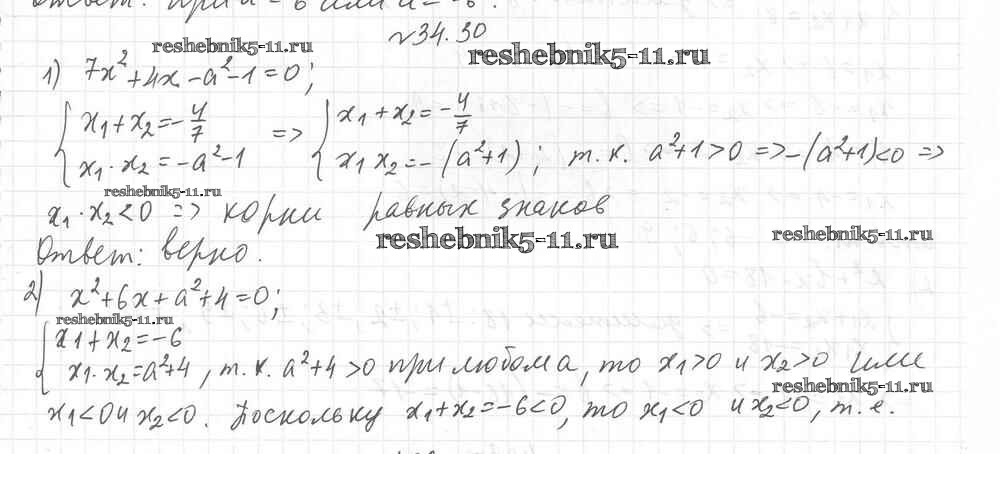 Ответ: при a = 6 или a = -6.
№34.30
reshebnik5-11.ru
reshebnik5-11.ru
1) 7x² + 4x - a² - 1 = 0;
{ x₁ + x₂ = -4/7 => { x₁ + x₂ = -4/7
x₁ · x₂ = -a² - 1 x₁ x₂ = -(a² + 1); т.к. a² + 1 > 0 => -(a² + 1) < 0 =>
reshebnik5-11.ru
x₁ · x₂ < 0 => корни равных знаков
reshebnik5-11.ru
reshebnik5-11.ru
Ответ: верно.
2) x² + 6x + a² + 4 = 0;
reshebnik5-11.ru
{ x₁ + x₂ = -6
x₁ · x₂ = a² + 4, т.к. a² + 4 > 0 при любом a, то x₁ > 0 и x₂ > 0 или
reshebnik5-11.ru
x₁ < 0 и x₂ < 0. Поскольку x₁ + x₂ = -6 < 0, то x₁ < 0 и x₂ < 0, т.е.